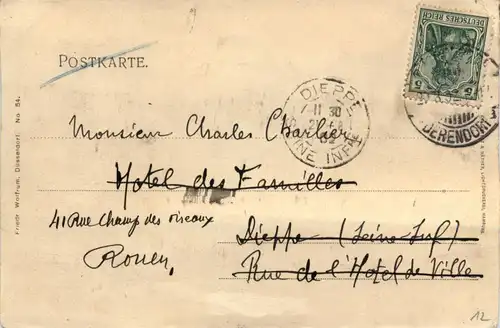 POSTKARTE.
DEUTSCHES REICH
5 5
DIEPPE
11 30
SEINE INFRE
DERENDORF
Monsieur Charles Charlier
Hotel des Familles
41 Rue Champ des oiseaux
Dieppe (Seine Inf)
Rouen,
Rue de l'Hotel de Ville
Friedr. Wolfrum, Düsseldorf. No. 54.
12